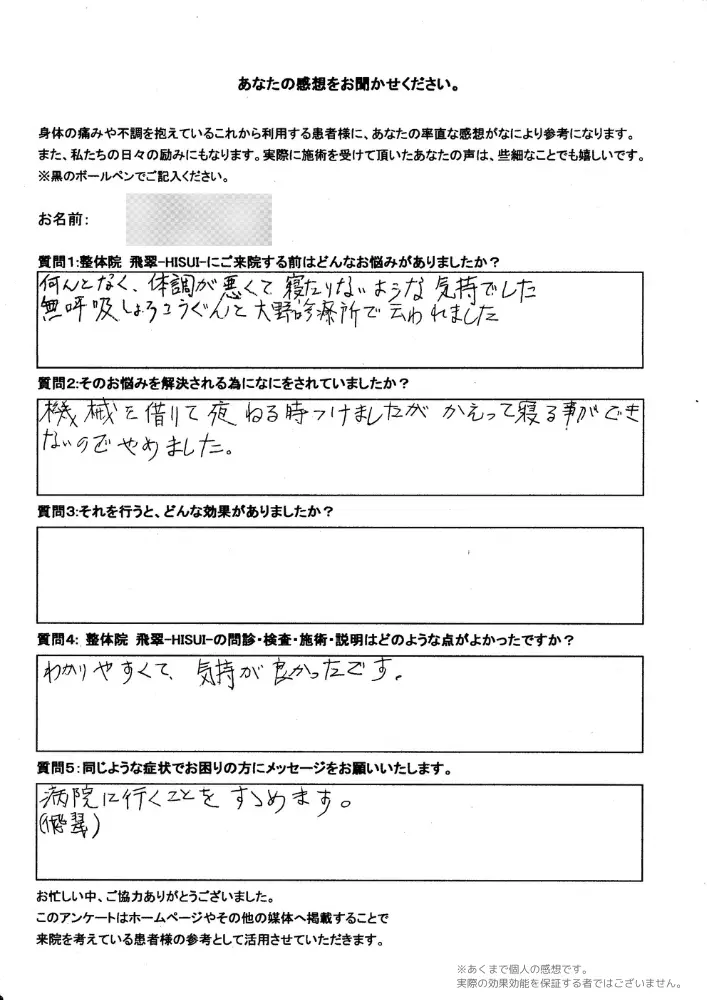 あなたの感想をお聞かせください。
身体の痛みや不調を抱えているこれから利用する患者様に、あなたの率直な感想がなにより参考になります。
また、私たちの日々の励みにもなります。実際に施術を受けて頂いたあなたの声は、些細なことでも嬉しいです。
※黒のボールペンでご記入ください。
お名前:
質問1:整体院 飛翠-HISUI-にご来院する前はどんなお悩みがありましたか？
何んとなく、体調が悪くて寝たりないような気持でした
無呼吸しょうこうぐんと大野診療所で云われました
質問2:そのお悩みを解決される為になにをされていましたか？
機械を借りて夜ねる時つけましたがかえって寝る事ができ
ないのでやめました。
質問3:それを行うと、どんな効果がありましたか？
質問4: 整体院 飛翠-HISUI-の問診・検査・施術・説明はどのような点がよかったですか？
わかりやすくて、気持が良かったです。
質問5:同じような症状でお困りの方にメッセージをお願いいたします。
病院に行くことをすゝめます。
(飛翠)
お忙しい中、ご協力ありがとうございました。
このアンケートはホームページやその他の媒体へ掲載することで
来院を考えている患者様の参考として活用させていただきます。
※あくまで個人の感想です。
実際の効果効能を保証する者ではございません。